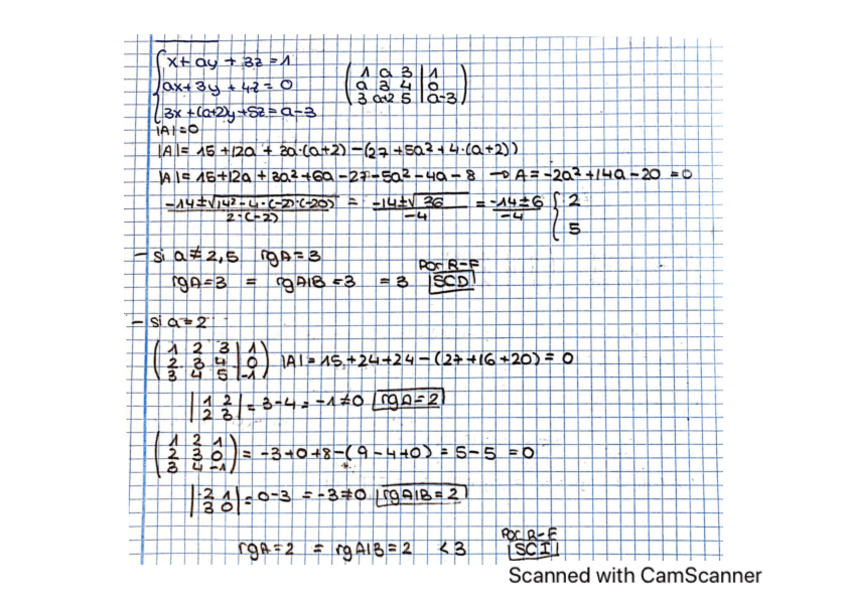 x + ay + 3z = 1
ax + 3y + 4z = 0
3x + (a+2)y + 5z = a-3
1 a 3 | 1
a 3 4 | 0
3 a+2 5 | a-3
|A| = 0
|A| = 15 + 12a + 3a·(a+2) - (27 + 5a² + 4·(a+2))
|A| = 15 + 12a + 3a² + 6a - 27 - 5a² - 4a - 8 → A = -2a² + 14a - 20 = 0
-14 ± √14² - 4·(-2)·(-20) / 2·(-2) = -14 ± √36 / -4 = -14 ± 6 / -4 { 2
5
- si a ≠ 2,5 rgA = 3
rgA = 3 = rgA|B = 3 = 3 Por R-F SCD
- si a = 2
1 2 3 | 1
2 3 4 | 0
3 4 5 | -1
|A| = 15 + 24 + 24 - (27 + 16 + 20) = 0
|1 2|
|2 3| = 3 - 4 = -1 ≠ 0 rgA = 2
1 2 1
2 3 0
3 4 -1
= -3 + 0 + 8 - (9 - 4 + 0) = 5 - 5 = 0
|-2 1|
|3 0| = 0 - 3 = -3 ≠ 0 rgA|B = 2
rgA = 2 = rgA|B = 2 < 3 Por R-F SCI
Scanned with CamScanner